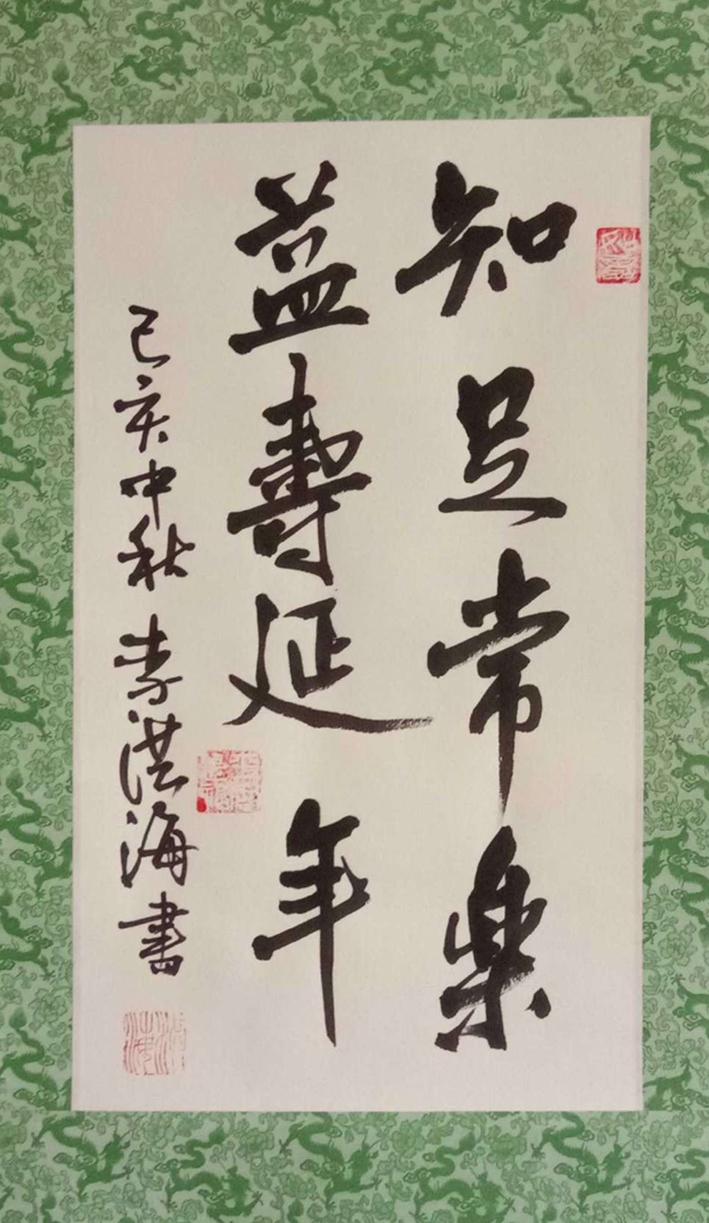 知足常樂
益壽延年
己亥中秋 李洪海書